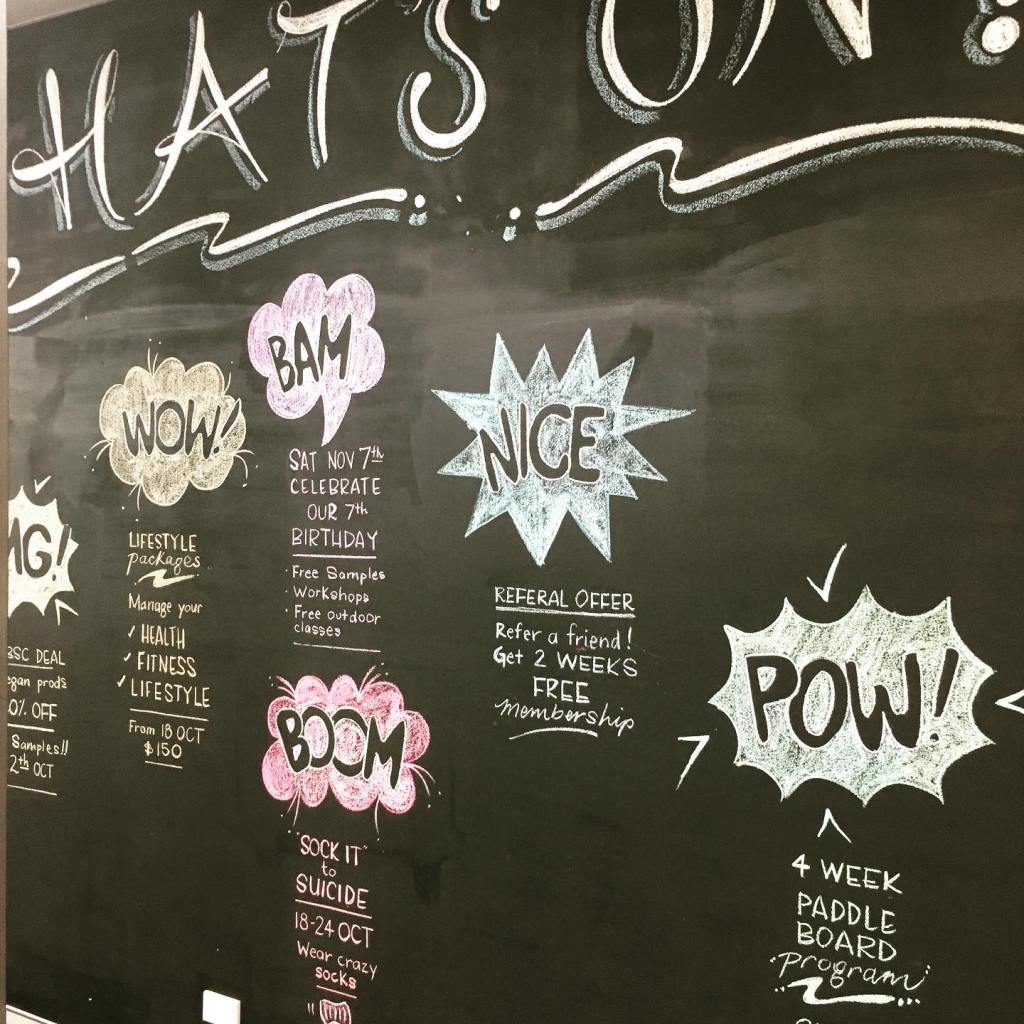 HATS ON!
BAM
SAT NOV 7th
CELEBRATE
OUR 7th
BIRTHDAY
· Free Samples
· Workshops
· Free outdoor
classes
WOW!
LIFESTYLE
packages
Manage your
✓ HEALTH
✓ FITNESS
✓ LIFESTYLE
From 18 OCT
$150
MG!
BSC DEAL
egan prods
0% OFF
Samples!!
2th OCT
NICE
REFERAL OFFER
Refer a friend!
Get 2 WEEKS
FREE
membership
BOOM
"SOCK IT"
to
SUICIDE
18-24 OCT
Wear crazy
socks
POW!
4 WEEK
PADDLE
BOARD
Program